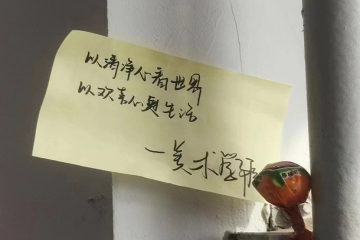 以清净心看世界
以欢喜心过生活
—美术学院